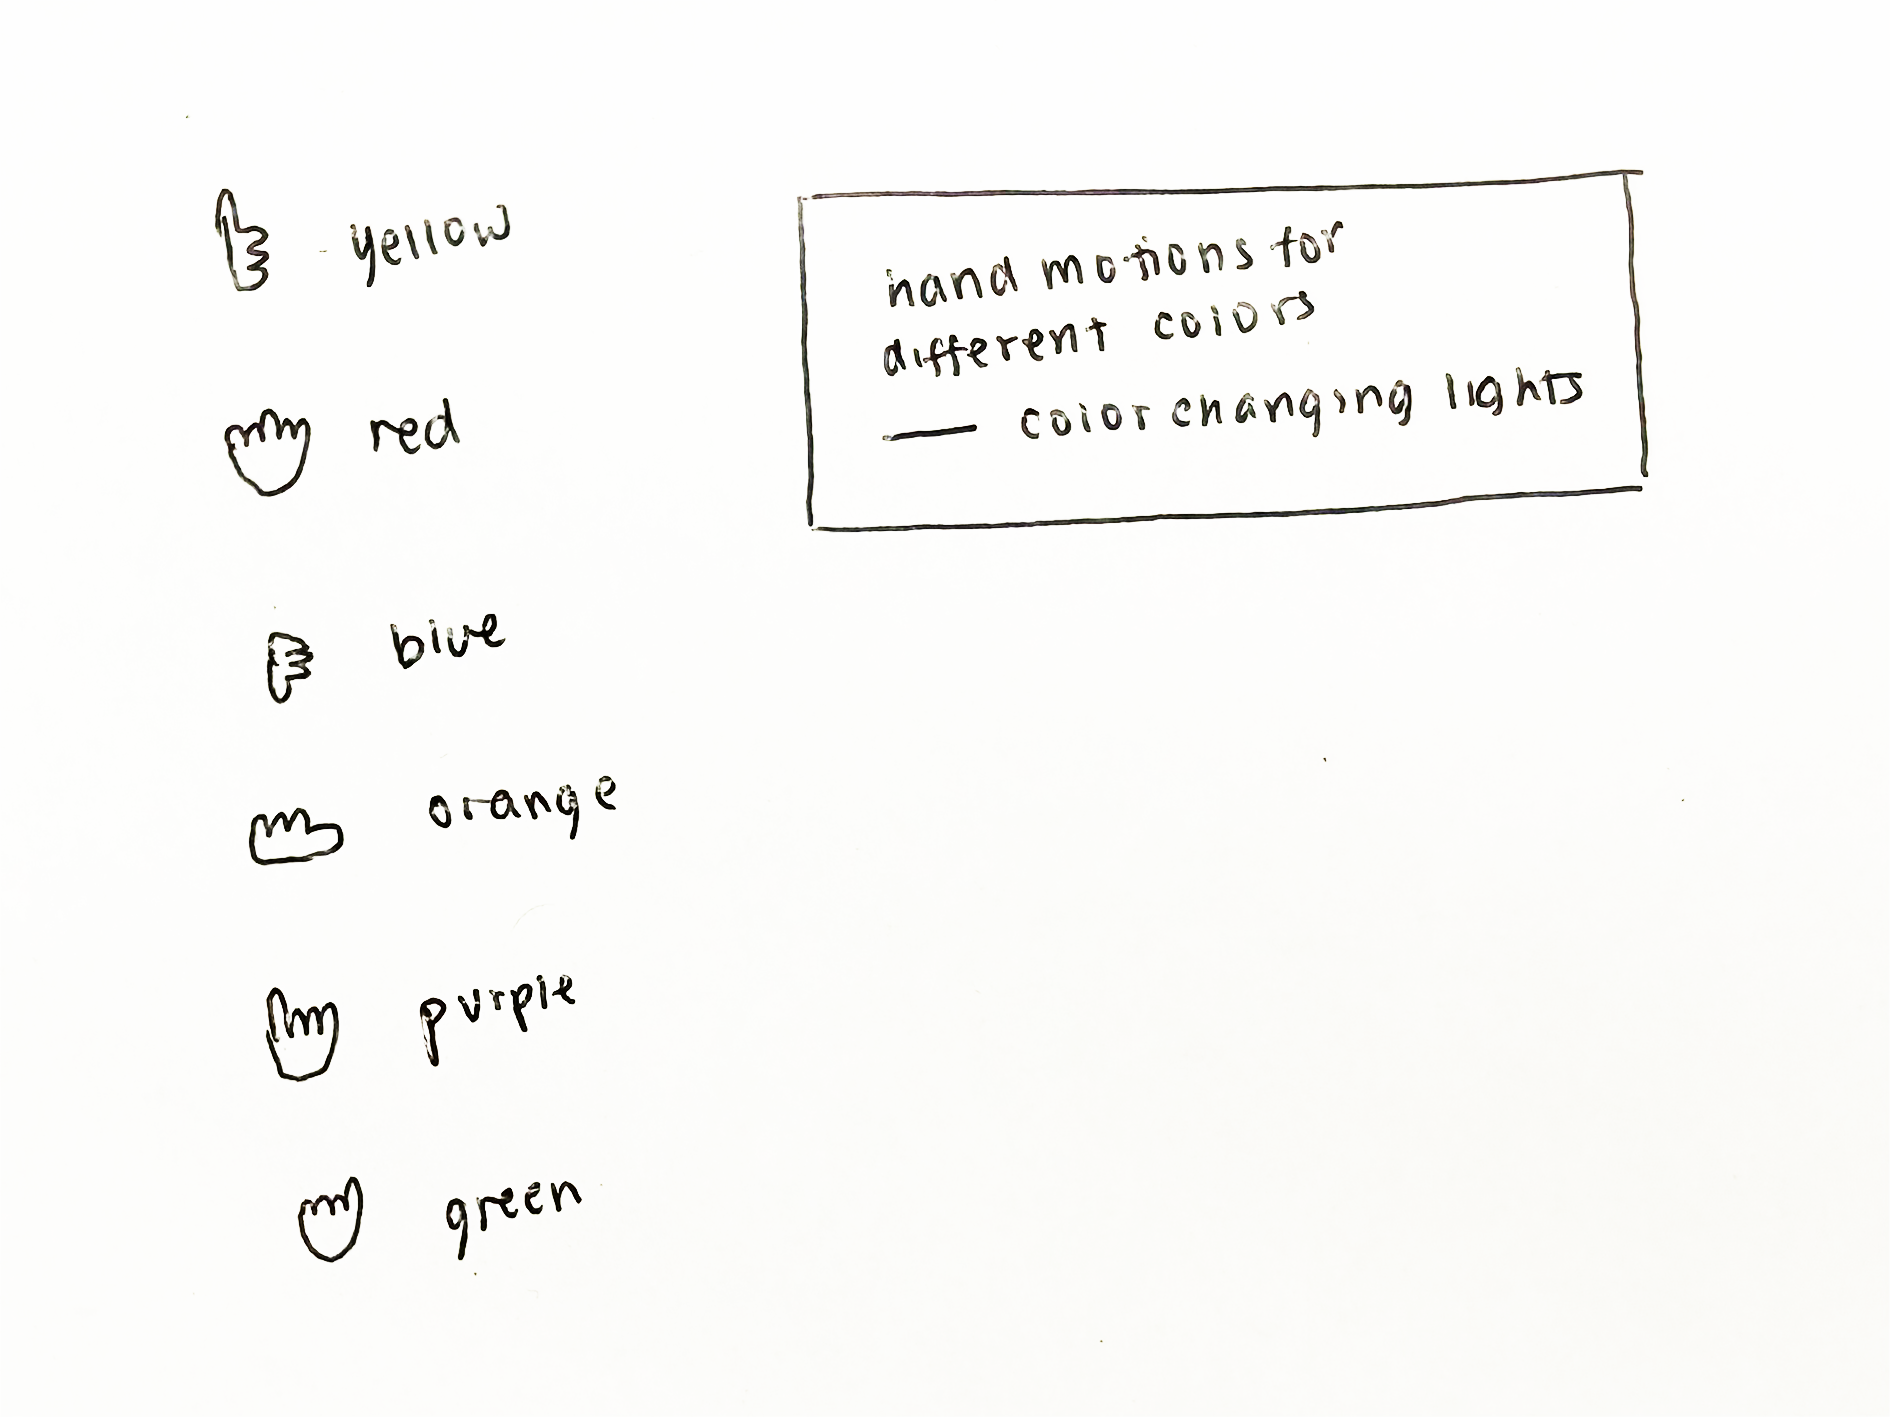 yellow
red
blue
orange
purple
green
hand motions for
different colors
— color changing lights